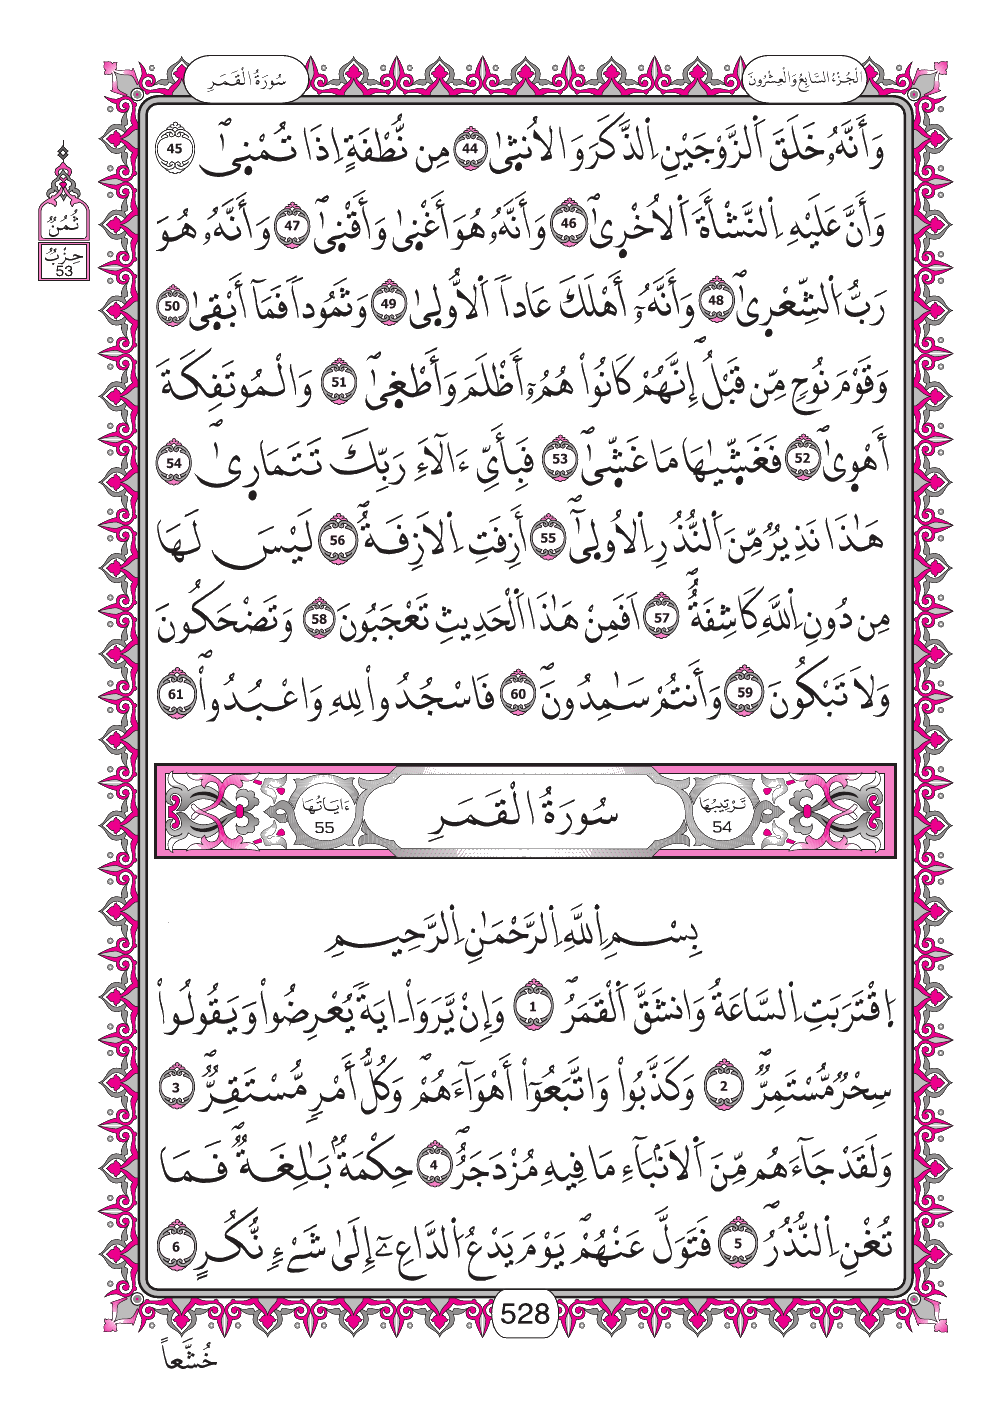 الْجُزْءُ السَّابِعُ وَالْعِشْرُونَ
سُورَةُ الْقَمَرِ
ثُمُنٌ
حِزْبٌ
53
وَأَنَّهُۥ خَلَقَ اَلزَّوْجَيْنِ اِلذَّكَرَ وَالُانث۪ىٰ 44 مِن نُّطْفَةٍ اِذَا تُمْن۪ىٰۖ 45
وَأَنَّ عَلَيْهِ اِلنَّشْأَةَ اَلُاخْر۪ىٰۖ 46 وَأَنَّهُۥ هُوَ أَغْن۪ىٰ وَأَقْن۪ىٰۖ 47 وَأَنَّهُۥ هُوَ
رَبُّ اُلشِّعْر۪ىٰۖ 48 وَأَنَّهُۥٓ أَهْلَكَ عَاداً اَلُّاول۪ىٰ 49 وَثَمُوداً فَمَآ أَبْق۪ىٰ 50
وَقَوْمَ نُوحٍ مِّن قَبْلُۖ إِنَّهُمْ كَانُواْ هُمُۥٓ أَظْلَمَ وَأَطْغ۪ىٰۖ 51 وَالْمُوتَفِكَةَ
أَهْو۪ىٰۖ 52 فَغَشّ۪ىٰهَا مَا غَشّ۪ىٰۖ 53 فَبِأَيِّ ءَالَآءِ رَبِّكَ تَتَمَار۪ىٰۖ 54
هَٰذَا نَذِيرٌ مِّنَ اَلنُّذُرِ اِلُاول۪ىٰٓۖ 55 أَزِفَتِ اِلَازِفَةُۖ 56 لَيْسَ لَهَا
مِن دُونِ اِللَّهِ كَاشِفَةٌۖ 57 اَفَمِنْ هَٰذَا اَلْحَدِيثِ تَعْجَبُونَ 58 وَتَضْحَكُونَ
وَلَا تَبْكُونَ 59 وَأَنتُمْ سَٰمِدُونَۖ 60 فَاسْجُدُواْ لِلهِ وَاعْبُدُواْۖ 61
تَرْتِيبُهَا
54
سُورَةُ الْقَمَرِ
ءَايَاتُهَا
55
بِسْمِ اِللَّهِ اِلرَّحْمَٰنِ اِلرَّحِيمِ
اِقْتَرَبَتِ اِلسَّاعَةُ وَانشَقَّ اَلْقَمَرُۖ 1 وَإِنْ يَّرَوَاْ ايَةً يُعْرِضُواْ وَيَقُولُواْ
سِحْرٌ مُّسْتَمِرٌّۖ 2 وَكَذَّبُواْ وَاتَّبَعُوٓاْ أَهْوَآءَهُمْۖ وَكُلُّ أَمْرٍ مُّسْتَقِرٌّۖ 3
وَلَقَدْ جَآءَهُم مِّنَ اَلَانۢبَآءِ مَا فِيهِ مُزْدَجَرٌۖ 4 حِكْمَةٌۢ بَٰلِغَةٌۖ فَمَا
تُغْنِ اِلنُّذُرُۖ 5 فَتَوَلَّ عَنْهُمْۖ يَوْمَ يَدْعُ اُلدَّاعِۦٓ إِلَىٰ شَےْءٍ نُّكُرٍ 6
528
خُشَّعاً